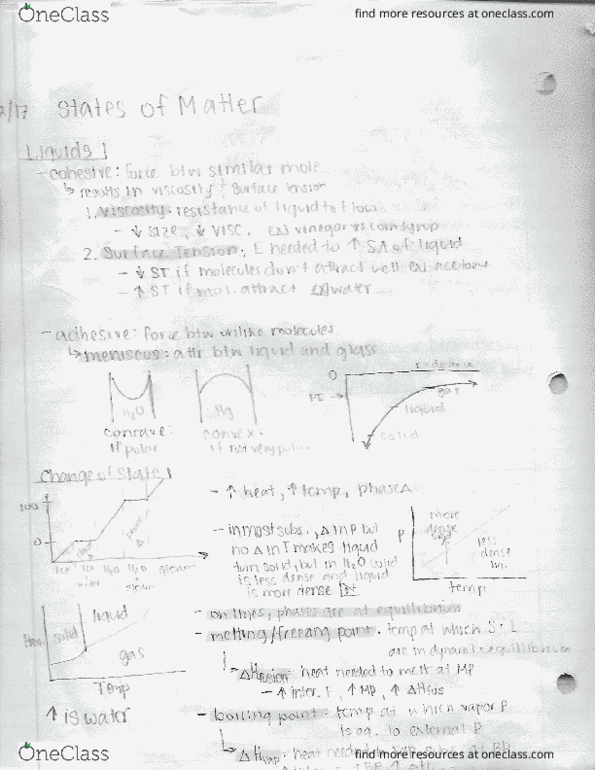 OneClass
find more resources at oneclass.com
2/17 States of Matter
Liquids
- cohesive: force btw similar mole
↳ results in viscosity & surface tension
1. Viscosity: resistance of liquid to flow
- ↓ size, ↓ visc. ex) vinegar vs corn syrup
2. Surface Tension: E needed to ↑ SA of liquid
- ↓ ST if molecules don't attract well ex) acetone
- ↑ ST if mol. attract ex) water
- adhesive: force btw unlike molecules
↳ meniscus: attr btw liquid and glass
H₂O
Hg
concave:
if polar
convex:
if not very polar
0
r = distance
PE →
gas
liquid
solid
Change of State
100
0
ice
ice
water
H₂O
H₂O
steam
steam
- ↑ heat, ↑ temp, phase Δ
- in most subs., Δ in P but
no Δ in T makes liquid
turn solid, but in H₂O solid
is less dense and liquid
is more dense
P
more
dense
solid
less
dense
liq.
temp
Pres.
solid
liquid
gas
Temp
↑ is water
- on lines, phases are at equilibrium
- melting/freezing point: temp at which S + L
are in dynamic equilibrium
- ΔHfusion: heat needed to melt at MP
- ↑ inter. F, ↑ MP, ↑ ΔHfus
- boiling point: temp at which vapor P
is eq. to external P
↳ ΔHvap: heat needed
OneClass
find more resources at oneclass.com